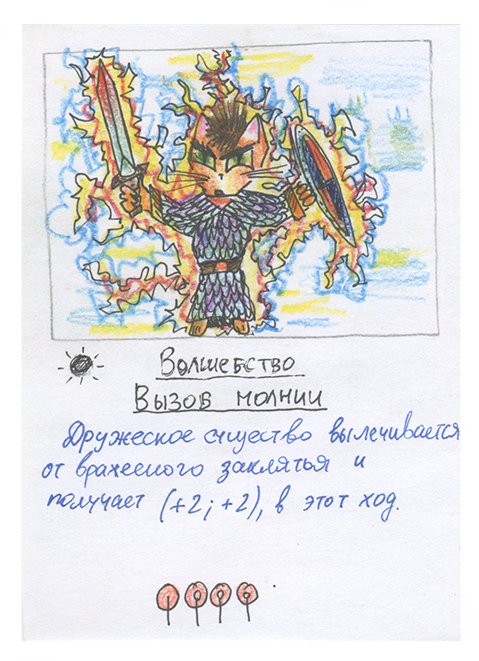 Волшебство
Вызов молнии
Дружеское существо вылечивается
от вражеского заклятья и
получает (+2; +2), в этот ход.